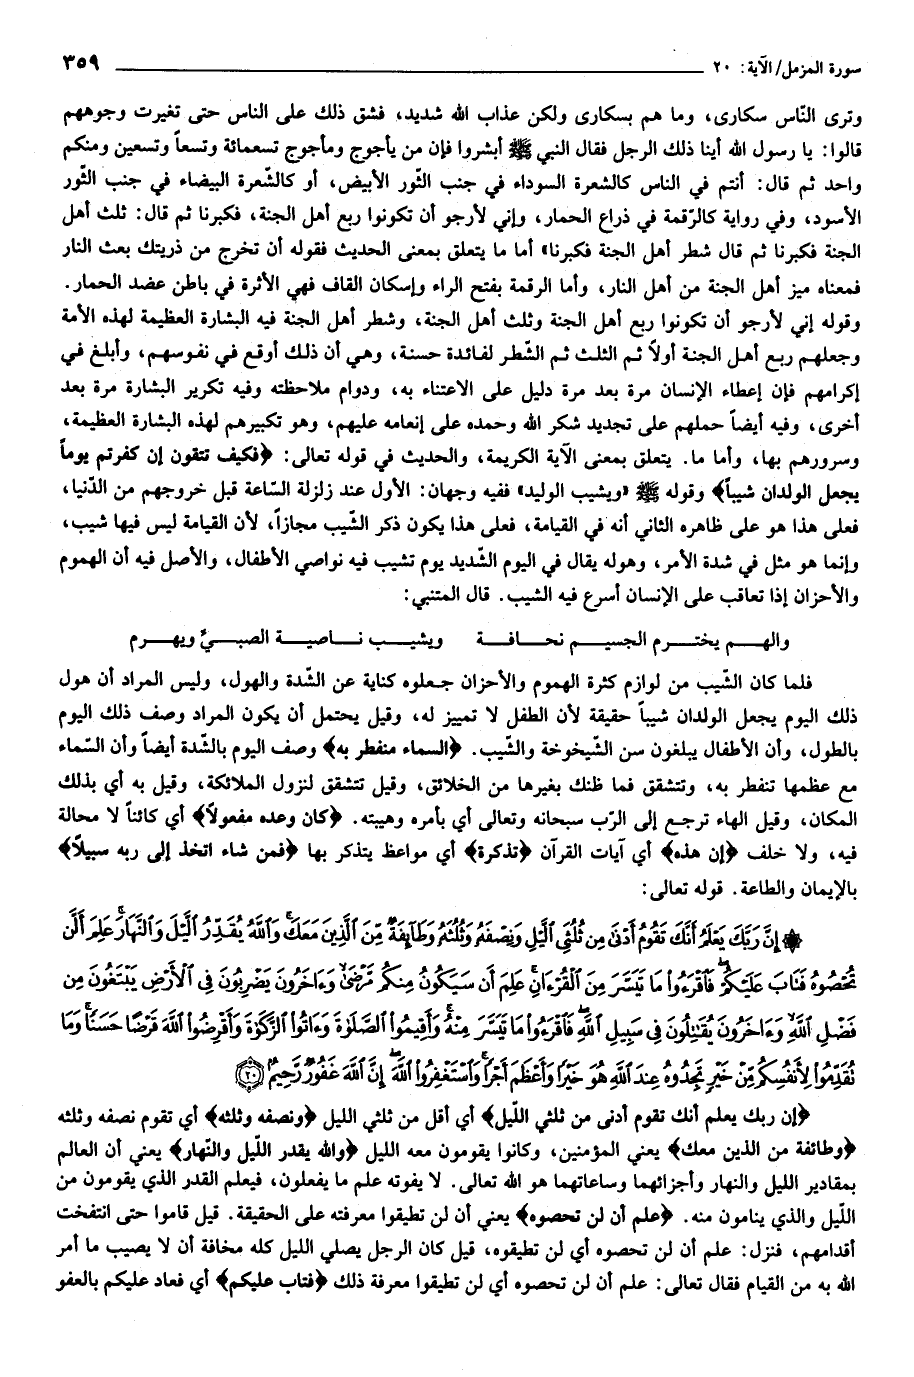 سورة المزمل/ الآية: ٢٠ ٣٥٩
وترى النّاس سكارى، وما هم بسكارى ولكن عذاب الله شديد، فشق ذلك على الناس حتى تغيرت وجوههم
قالوا: يا رسول الله أينا ذلك الرجل فقال النبي ﷺ أبشروا فإن من يأجوج ومأجوج تسعمائة وتسعاً وتسعين ومنكم
واحد ثم قال: أنتم في الناس كالشعرة السوداء في جنب الثّور الأبيض، أو كالشّعرة البيضاء في جنب الثّور
الأسود، وفي رواية كالرّقمة في ذراع الحمار، وإني لأرجو أن تكونوا ربع أهل الجنة، فكبرنا ثم قال: ثلث أهل
الجنة فكبرنا ثم قال شطر أهل الجنة فكبرنا» أما ما يتعلق بمعنى الحديث فقوله أن تخرج من ذريتك بعث النار
فمعناه ميز أهل الجنة من أهل النار، وأما الرقمة بفتح الراء وإسكان القاف فهي الأثرة في باطن عضد الحمار.
وقوله إني لأرجو أن تكونوا ربع أهل الجنة وثلث أهل الجنة، وشطر أهل الجنة فيه البشارة العظيمة لهذه الأمة
وجعلهم ربع أهل الجنة أولاً ثم الثلث ثم الشّطر لفائدة حسنة، وهي أن ذلك أوقع في نفوسهم، وأبلغ في
إكرامهم فإن إعطاء الإنسان مرة بعد مرة دليل على الاعتناء به، ودوام ملاحظته وفيه تكرير البشارة مرة بعد
أخرى، وفيه أيضاً حملهم على تجديد شكر الله وحمده على إنعامه عليهم، وهو تكبيرهم لهذه البشارة العظيمة،
وسرورهم بها، وأما ما. يتعلق بمعنى الآية الكريمة، والحديث في قوله تعالى: ﴿فكيف تتقون إن كفرتم يوماً
يجعل الولدان شيباً﴾ وقوله ﷺ «ويشيب الوليد» ففيه وجهان: الأول عند زلزلة السّاعة قبل خروجهم من الدّنيا،
فعلى هذا هو على ظاهره الثاني أنه في القيامة، فعلى هذا يكون ذكر الشّيب مجازاً، لأن القيامة ليس فيها شيب،
وإنما هو مثل في شدة الأمر، وهوله يقال في اليوم الشّديد يوم تشيب فيه نواصي الأطفال، والأصل فيه أن الهموم
والأحزان إذا تعاقب على الإنسان أسرع فيه الشيب. قال المتنبي:
والهـم يختـرم الجسيـم نحـافـة ويشيـب نـاصيـة الصبـيّ ويهـرم
فلما كان الشّيب من لوازم كثرة الهموم والأحزان جعلوه كناية عن الشّدة والهول، وليس المراد أن هول
ذلك اليوم يجعل الولدان شيباً حقيقة لأن الطفل لا تمييز له، وقيل يحتمل أن يكون المراد وصف ذلك اليوم
بالطول، وأن الأطفال يبلغون سن الشّيخوخة والشّيب. ﴿السماء منفطر به﴾ وصف اليوم بالشّدة أيضاً وأن السّماء
مع عظمها تنفطر به، وتتشقق فما ظنك بغيرها من الخلائق، وقيل تتشقق لنزول الملائكة، وقيل به أي بذلك
المكان، وقيل الهاء ترجع إلى الرّب سبحانه وتعالى أي بأمره وهيبته. ﴿كان وعده مفعولاً﴾ أي كائناً لا محالة
فيه، ولا خلف ﴿إن هذه﴾ أي آيات القرآن ﴿تذكرة﴾ أي مواعظ يتذكر بها ﴿فمن شاء اتخذ إلى ربه سبيلاً﴾
بالإيمان والطاعة. قوله تعالى:
۞ إِنَّ رَبَّكَ يَعْلَمُ أَنَّكَ تَقُومُ أَدْنَىٰ مِن ثُلُثَيِ ٱلَّيْلِ وَنِصْفَهُۥ وَثُلُثَهُۥ وَطَآئِفَةٌ مِّنَ ٱلَّذِينَ مَعَكَ ۚ وَٱللَّهُ يُقَدِّرُ ٱلَّيْلَ وَٱلنَّهَارَ ۚ عَلِمَ أَلَّن
تُحْصُوهُ فَتَابَ عَلَيْكُمْ ۖ فَٱقْرَءُوا۟ مَا تَيَسَّرَ مِنَ ٱلْقُرْءَانِ ۚ عَلِمَ أَن سَيَكُونُ مِنكُم مَّرْضَىٰ ۙ وَءَاخَرُونَ يَضْرِبُونَ فِى ٱلْأَرْضِ يَبْتَغُونَ مِن
فَضْلِ ٱللَّهِ ۙ وَءَاخَرُونَ يُقَٰتِلُونَ فِى سَبِيلِ ٱللَّهِ ۖ فَٱقْرَءُوا۟ مَا تَيَسَّرَ مِنْهُ ۚ وَأَقِيمُوا۟ ٱلصَّلَوٰةَ وَءَاتُوا۟ ٱلزَّكَوٰةَ وَأَقْرِضُوا۟ ٱللَّهَ قَرْضًا حَسَنًا ۚ وَمَا
تُقَدِّمُوا۟ لِأَنفُسِكُم مِّنْ خَيْرٍ تَجِدُوهُ عِندَ ٱللَّهِ هُوَ خَيْرًا وَأَعْظَمَ أَجْرًا ۚ وَٱسْتَغْفِرُوا۟ ٱللَّهَ ۖ إِنَّ ٱللَّهَ غَفُورٌ رَّحِيمٌۢ ﴿٢٠﴾
﴿إن ربك يعلم أنك تقوم أدنى من ثلثي اللّيل﴾ أي أقل من ثلثي الليل ﴿ونصفه وثلثه﴾ أي تقوم نصفه وثلثه
﴿وطائفة من الذين معك﴾ يعني المؤمنين، وكانوا يقومون معه الليل ﴿والله يقدر اللّيل والنّهار﴾ يعني أن العالم
بمقادير الليل والنهار وأجزائهما وساعاتهما هو الله تعالى. لا يفوته علم ما يفعلون، فيعلم القدر الذي يقومون من
اللّيل والذي ينامون منه. ﴿علم أن لن تحصوه﴾ يعني أن لن تطيقوا معرفته على الحقيقة. قيل قاموا حتى انتفخت
أقدامهم، فنزل: علم أن لن تحصوه أي لن تطيقوه، قيل كان الرجل يصلي الليل كله مخافة أن لا يصيب ما أمر
الله به من القيام فقال تعالى: علم أن لن تحصوه أي لن تطيقوا معرفة ذلك ﴿فتاب عليكم﴾ أي فعاد عليكم بالعفو